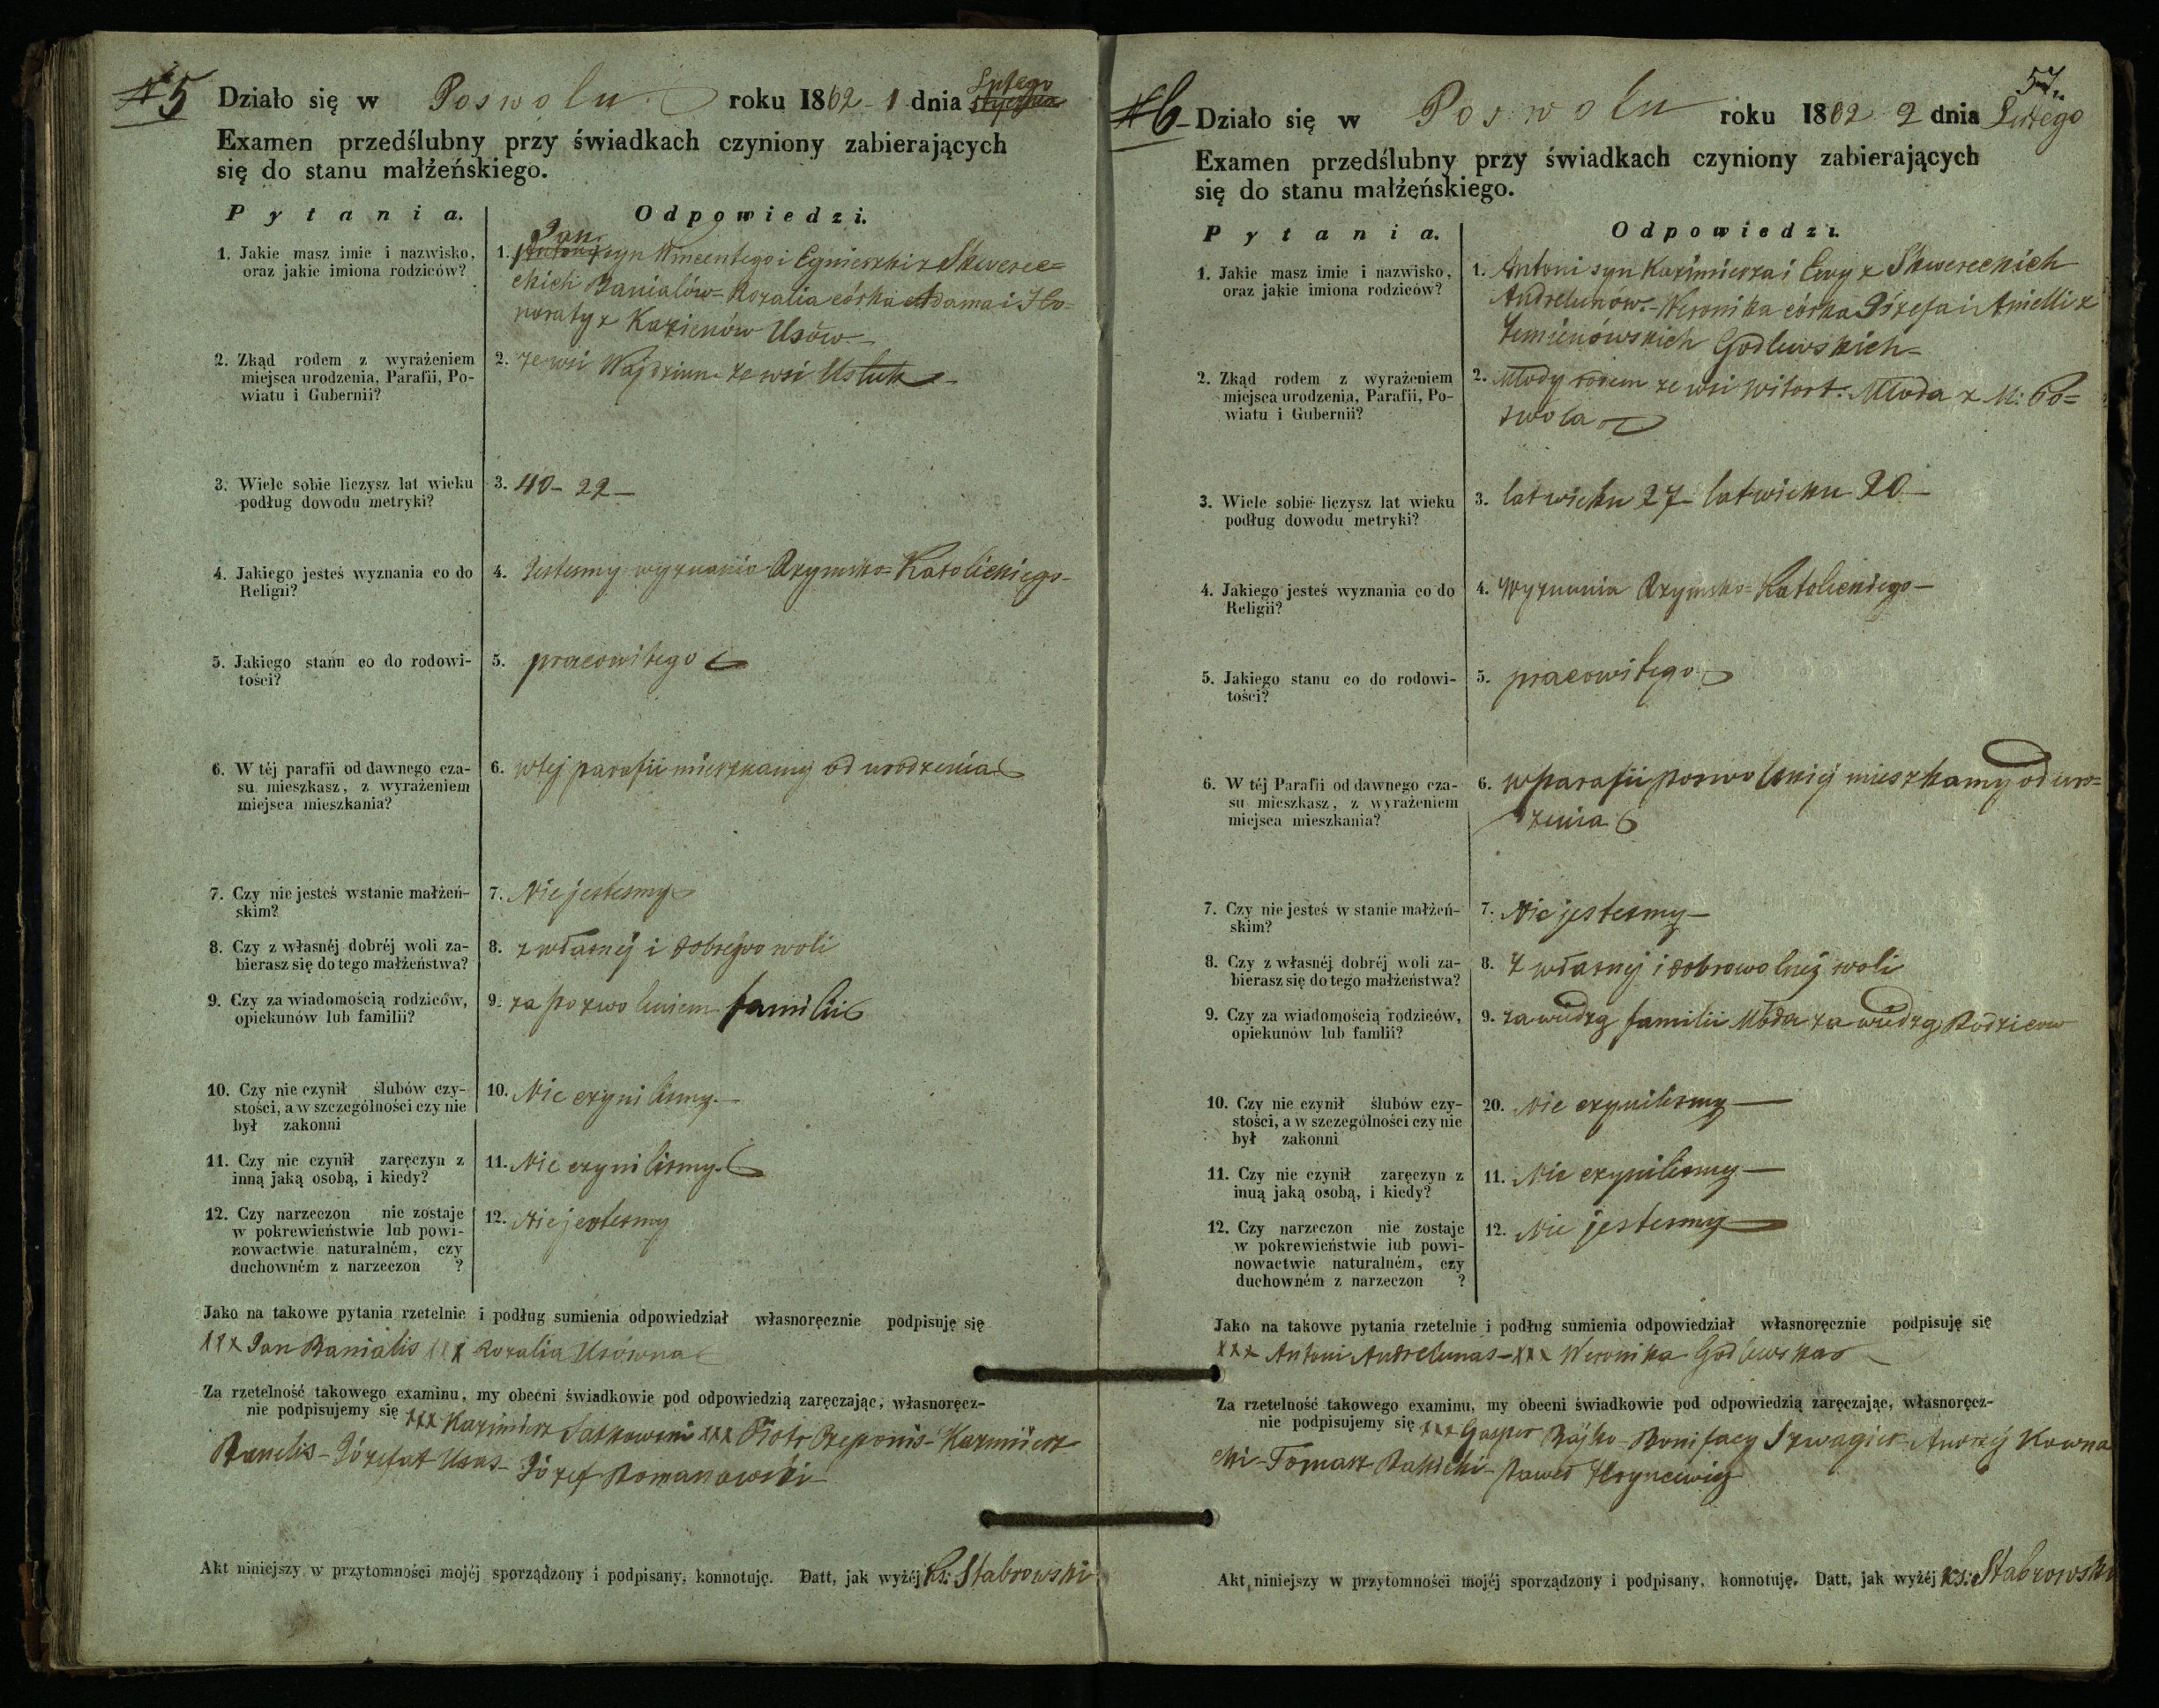 № 5 Działo się w Poswolu roku 1862 - 1 dnia Lutego
Examen przedślubny przy świadkach czyniony zabierających
się do stanu małżeńskiego.
Pytania. Odpowiedzi.
1. Jakie masz imie i nazwisko,
oraz jakie imiona rodziców?
1. Jan syn Wincentego i Egnieszki z Skwerec=
ckich Banialów - Rozalia córka Adama i Ho=
noraty z Kazienów Usów -
2. Zkąd rodem z wyrażeniem
miejsca urodzenia, Parafii, Po-
wiatu i Gubernii?
2. ze wsi Wajdziun - ze wsi Usluk -
3. Wiele sobie liczysz lat wieku
podług dowodu metryki?
3. 40 - 22 -
4. Jakiego jesteś wyznania co do
Religii?
4. Jestesmy wyznania Rzymsko = Katolickiego -
5. Jakiego stanu co do rodowi-
tości?
5. pracowitego
6. W téj parafii od dawnego cza-
su mieszkasz, z wyrażeniem
miejsca mieszkania?
6. w tej parafii mieszkamy od urodzenia
7. Czy nie jesteś wstanie małżeń-
skim?
7. Nie jestesmy
8. Czy z własnéj dobréj woli za-
bierasz się do tego małżeństwa?
8. z własnej i dobrejwo woli
9. Czy za wiadomością rodziców,
opiekunów lub familii?
9. za pozwoleniem familii
10. Czy nie czynił ślubów czy-
stości, a w szczególności czy nie
był zakonni
10. Nie czynilismy. -
11. Czy nie czynił zaręczyn z
inną jaką osobą, i kiedy?
11. Nie czynilismy.
12. Czy narzeczon nie zostaje
w pokrewieństwie lub powi-
nowactwie naturalném, czy
duchowném z narzeczon ?
12. Nie jestesmy
Jako na takowe pytania rzetelnie i podług sumienia odpowiedział własnoręcznie podpisuję się
xxx Jan Banialis xxx Rozalia Usówna
Za rzetelność takowego examinu, my obecni świadkowie pod odpowiedzią zaręczając, własnoręcz-
nie podpisujemy się xxx Kazimierz Satkowski xxx Piotr Czeponis - Kazimierz
Ranelis - Józefat Usas - Józef Romanowski
Akt niniejszy w przytomności mojéj sporządzony i podpisany, konnotuję. Datt, jak wyżéj Ks: Stabrowski
57.
№ 6 - Działo się w Poswolu roku 1862 2 dnia Lutego
Examen przedślubny przy świadkach czyniony zabierających
się do stanu małżeńskiego.
Pytania. Odpowiedzi.
1. Jakie masz imie i nazwisko,
oraz jakie imiona rodziców?
1. Antoni syn Kazimierza i Ewy z Skwereckich
Andrelunów. - Weronika córka Józefa i Anielli z
Ziemienówskich Godlewskich =
2. Zkąd rodem z wyrażeniem
miejsca urodzenia, Parafii, Po-
wiatu i Gubernii?
2. Młody rodem ze wsi Witort. Młoda z M: Po=
swola
3. Wiele sobie liczysz lat wieku
podług dowodu metryki?
3. lat wieku 27 - lat wieku 20 -
4. Jakiego jesteś wyznania co do
Religii?
4. Wyznania Rzymsko = Katolickiego -
5. Jakiego stanu co do rodowi-
tości?
5. pracowitego
6. W téj Parafii od dawnego cza-
su mieszkasz, z wyrażeniem
miejsca mieszkania?
6. w parafii poswolskiej mieszkamy od uro=
zenia
7. Czy nie jesteś w stanie małżeń-
skim?
7. Nie jestesmy -
8. Czy z własnéj dobréj woli za-
bierasz się do tego małżeństwa?
8. z własnej i dobrowolnej woli
9. Czy za wiadomością rodziców,
opiekunów lub famlii?
9. za wiedzą familii Młoda za wiedzą Rodzicow
10. Czy nie czynił ślubów czy-
stości, a w szczególności czy nie
był zakonni
20. Nie czynilismy -
11. Czy nie czynił zaręczyn z
inuą jaką osobą, i kiedy?
11. Nie czynilismy -
12. Czy narzeczon nie zostaje
w pokrewieństwie iub powi-
nowactwie naturalném, czy
duchowném z narzeczon ?
12. Nie jestesmy -
Jako na takowe pytania rzetelnie i podług sumienia odpowiedział własnoręcznie podpisuję się
xxx Antoni Andrelunas - xxx Weronika Godlewska
Za rzetelność takowego examinu, my obecni świadkowie pod odpowiedzią zaręczając, własnoręcz-
nie podpisujemy się xxx Gasper Rajko - Bonifacy Szwagier - Andrzej Kowna
cki - Tomasz Rakicki - Paweł Hryncewicz
Akt niniejszy w przytomności mojéj sporządzony i podpisany, konnotuję. Datt, jak wyżéj Ks: Stabrowski